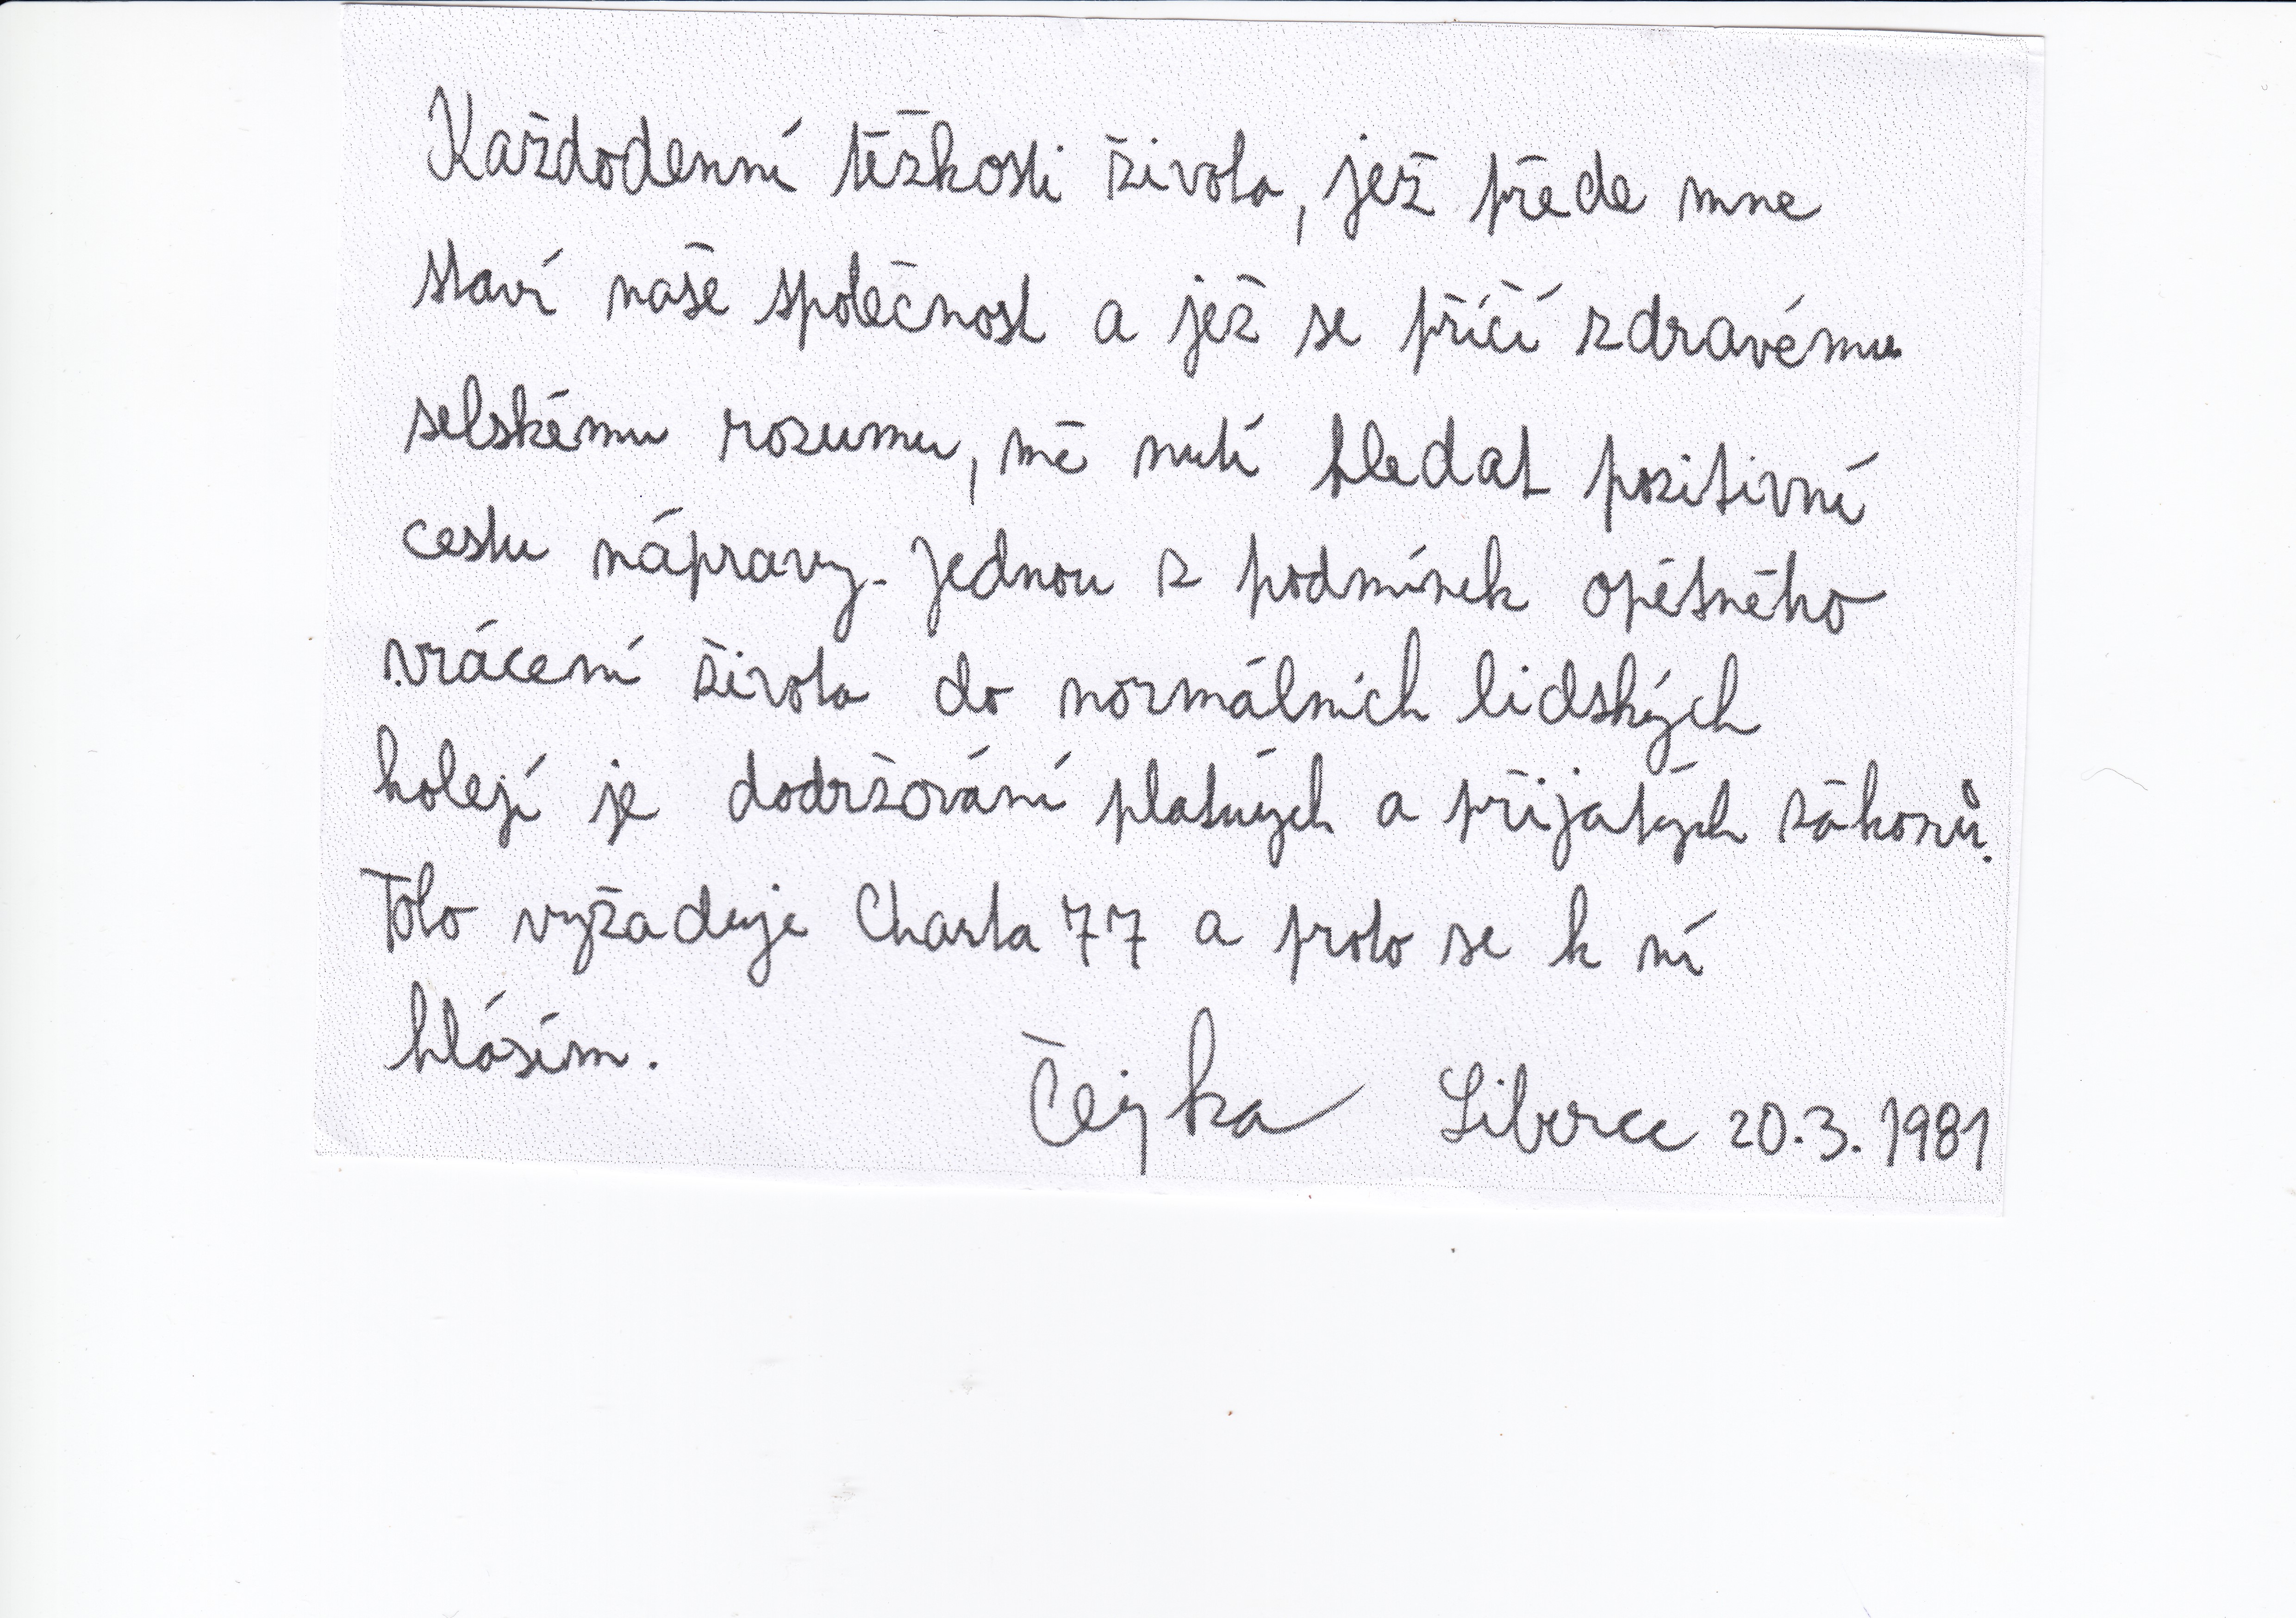 Každodenní těžkosti života, jež přede mne
staví naše společnost a jež se příčí zdravému
selskému rozumu, mě nutí hledat pozitivní
cestu nápravy. Jednou z podmínek opětného
vrácení života do normálních lidských
kolejí je dodržování platných a přijatých zákonů.
Toto vyžaduje Charta 77 a proto se k ní
hlásím.
Čejka Liberec 20.3.1981